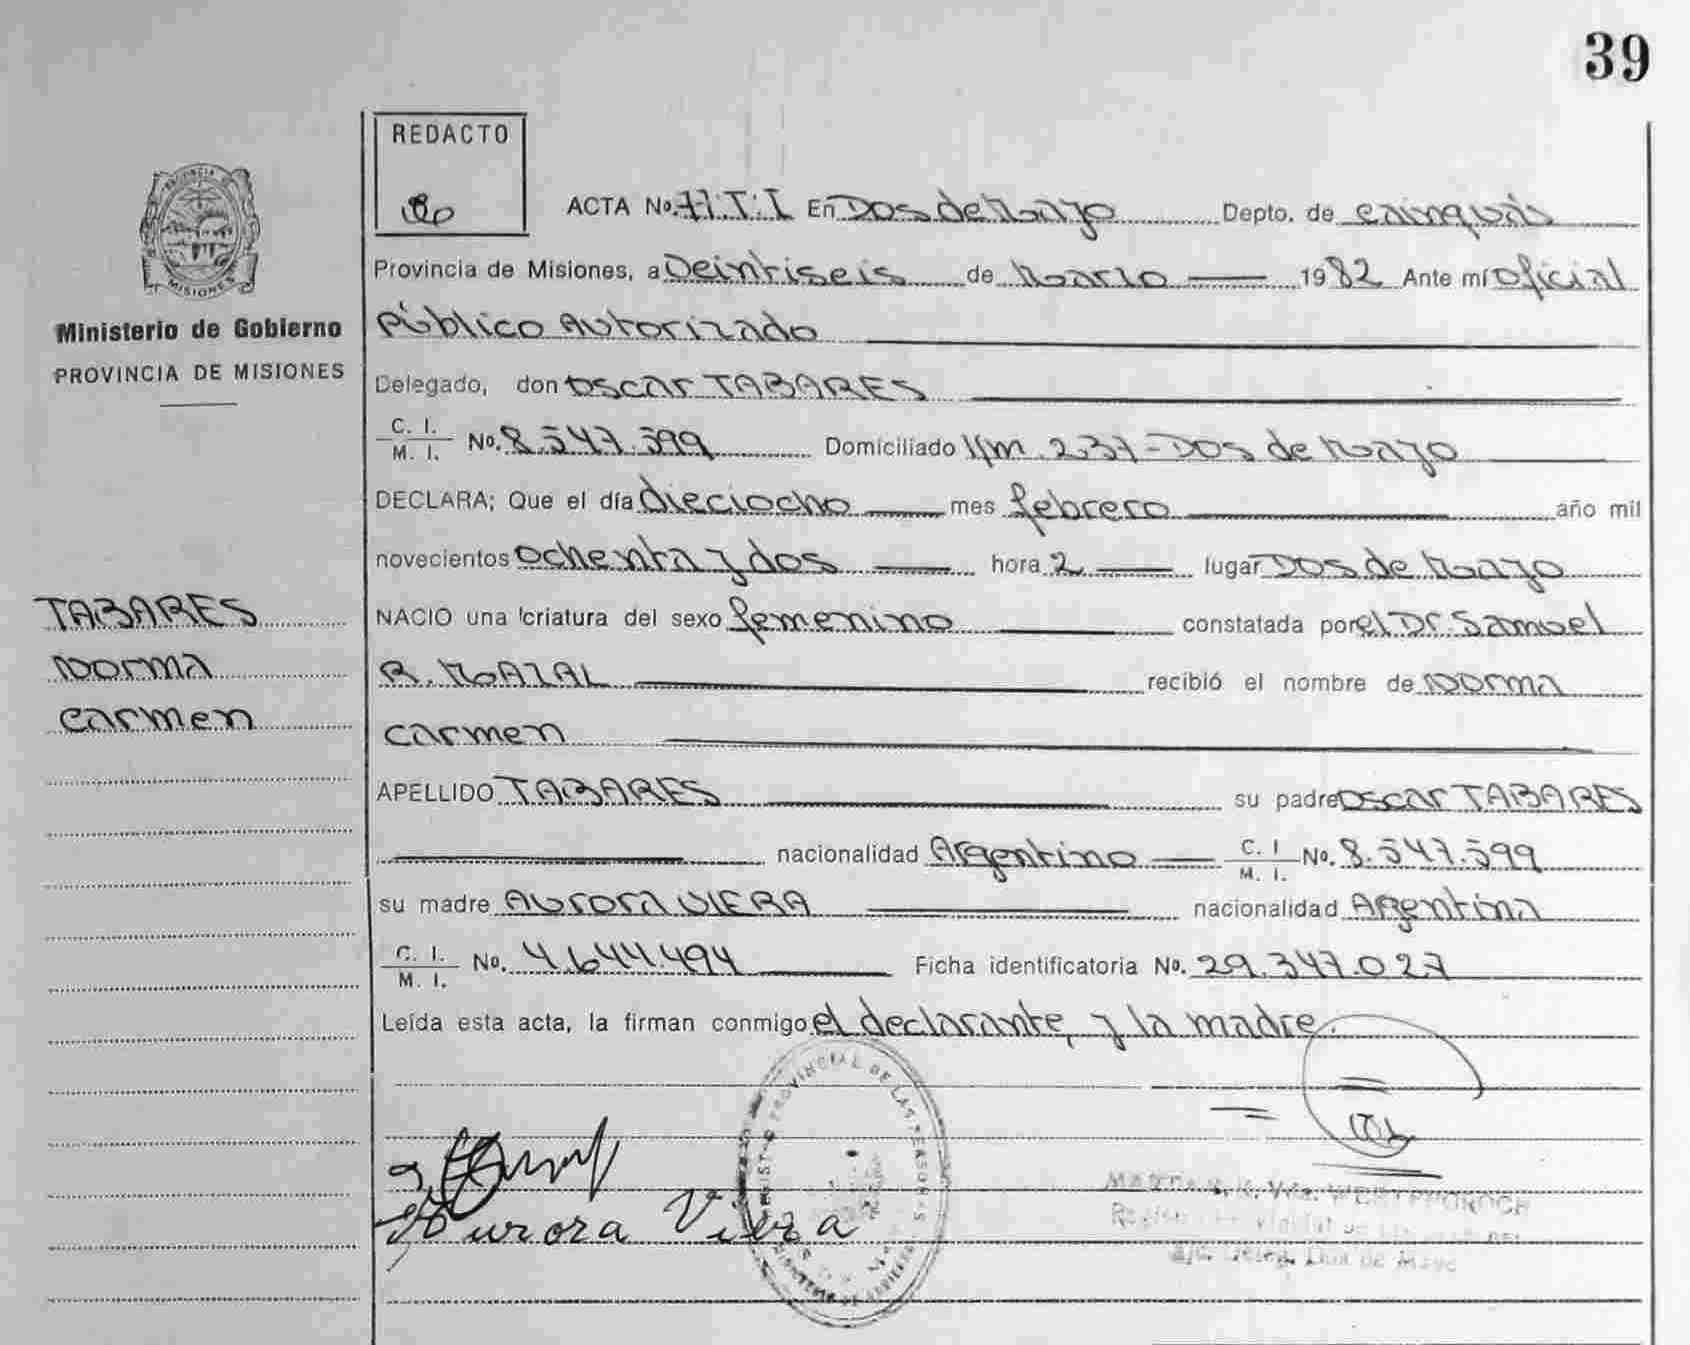 39
REDACTO
ACTA No. 77.T.I En Dos de Mayo Depto. de Cainguás
Provincia de Misiones, a Veintiseis de Marzo 1982 Ante mí Oficial
Público Autorizado
Delegado, don Oscar TABARES
C. I. M. I. No. 8.547.599 Domiciliado Km. 237-Dos de Mayo
DECLARA; Que el día dieciocho mes febrero año mil
novecientos ochenta y dos hora 2 lugar Dos de Mayo
NACIO una criatura del sexo femenino constatada por el Dr. Samuel
R. MAZAL recibió el nombre de Norma
Carmen
APELLIDO TABARES su padre Oscar TABARES
nacionalidad Argentino C. I M. I. No. 8.547.599
su madre Aurora VIERA nacionalidad Argentina
C. I. M. I. No. 4.644.494 Ficha identificatoria No. 29.347.027
Leída esta acta, la firman conmigo el declarante, y la madre.
Aurora Viera
PROVINCIA DE MISIONES
Ministerio de Gobierno
PROVINCIA DE MISIONES
TABARES
Norma
Carmen
PROVINCIAL DE LAS PERSONAS
Dos de Mayo